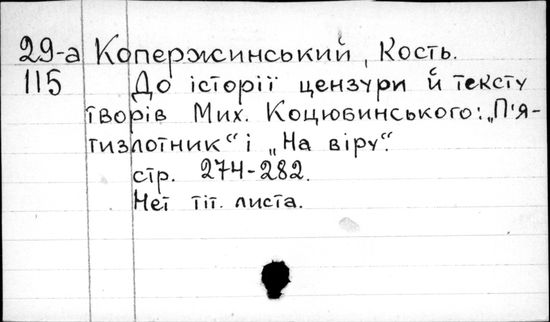 29-а Копержинський, Кость.
115 До історії цензури й тексту
творів Мих. Коцюбинського: „П'я-
тизлотник“ і „На віру“.
стр. 274-282.
Неї тіт. листа.